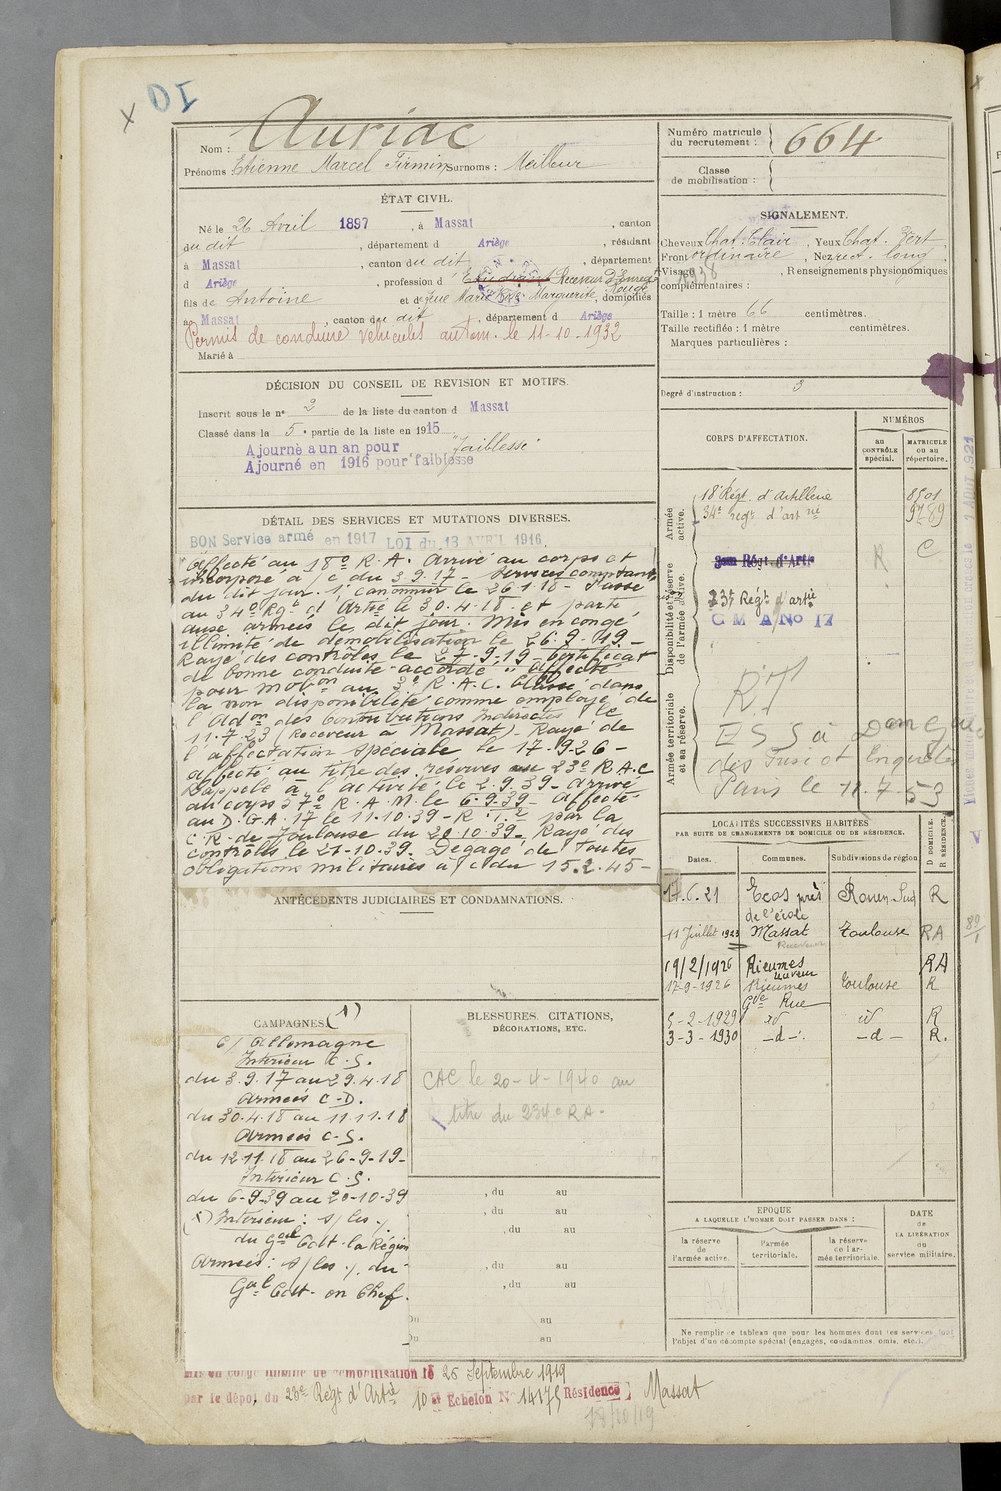 DI
X
Nom : Auriac
Prénoms : Etienne Marcel Firmin Surnoms : Meilleur
Numéro matricule
du recrutement : 664
Classe
de mobilisation :
ÉTAT CIVIL.
Né le 26 Avril 1897, à Massat, canton
du dit, département d Ariège, résidant
à Massat, canton du dit, département
d Ariège, profession d Etudiant Receveur
fils de Antoine et de Marie Marguerite, domiciliés
à Massat, canton du dit, département d Ariège
Permis de conduire véhicules autom. le 11-10-1932
Marié à
SIGNALEMENT.
Cheveux Chat. Clair, Yeux Chat. Vert
Front ordinaire, Nez rect. long
Visage, Renseignements physionomiques
complémentaires :
Taille : 1 mètre 66 centimètres.
Taille rectifiée : 1 mètre centimètres.
Marques particulières :
Degré d'instruction : 3
DÉCISION DU CONSEIL DE REVISION ET MOTIFS.
Inscrit sous le n° 2 de la liste du canton d Massat
Classé dans la 5e partie de la liste en 1915
Ajourné a un an pour "faiblesse"
Ajourné en 1916 pour faiblesse
DÉTAIL DES SERVICES ET MUTATIONS DIVERSES.
BON Service armé en 1917 LOI du 13 AVRIL 1916
Affecté au 18e R.A. Arrivé au corps et
incorporé à/c du 3.9.17 - Services comptant
du dit jour. 1r canonnier le 26.1.18 - Passé
au 34e Rgt d'Artie le 30.4.18 et parti
aux armées le dit jour. Mis en congé
illimité de démobilisation le 26.9.19 -
Rayé des contrôles le 27.9.19 Certificat
de bonne conduite "accordé" Affecté
pour mobon au 3e R.A.C. Classé dans
la non disponibilité comme employé de
l'Adon des Contributions Indirectes le
11.7.23 (Receveur à Massat). Rayé de
l'affectation spéciale le 17.9.26 -
affecté au titre des réserves au 23e R.A.C
Rappelé à l'activité le 2.9.39 - Arrivé
au corps 37e R.A.M. le 6.9.39 - Affecté
au D.G.A. 17 le 11.10.39 - R.T.2 par la
C.R. de Toulouse du 20.10.39 - Rayé des
contrôles le 21-10-39. Dégagé de toutes
obligations militaires à/c du 15.2.45 -
CORPS D'AFFECTATION.
NUMÉROS
au
CONTRÔLE
spécial.
MATRICULE
ou au
répertoire.
Armée
active.
18e Régt. d'Artillerie 8501
34e regt d'art rie 9789
Disponibilité et réserve
de l'armée active.
3em Régt. d'Artie R C
23e Régt d'artie
C M A No 17
Armée territoriale
et sa réserve.
Paris le 11-7-53
LOCALITÉS SUCCESSIVES HABITÉES
PAR SUITE DE CHANGEMENTS DE DOMICILE OU DE RÉSIDENCE.
Dates. Communes. Subdivisions de région. D DOMICILE. R RÉSIDENCE.
17.6.21 Ecos près de l'école Rouen Sud R
11 Juillet 1923 Massat Toulouse RA
Receveur
19/2/1926 Rieumes RA
17-9-1926 Rieumes Toulouse R
Gde Rue
5-2-1929 id id R
3-3-1930 -d- -d- R.
ANTÉCÉDENTS JUDICIAIRES ET CONDAMNATIONS.
CAMPAGNES. (1)
c/ Allemagne
Intérieur C.S.
du 3.9.17 au 29.4.18
Armées C-D.
du 30.4.18 au 11.11.18
Armées C-S.
du 12.11.18 au 26-9-19-
Intérieur C.S.
du 6-9-39 au 20-10-39
(1) Intérieur : s/ les
du Gal Cdt la Région
Armées : s/ les du
Gal Cdt en Chef.
BLESSURES, CITATIONS,
DÉCORATIONS, ETC.
CAC le 20-4-1940 au
titre du 234e RA.
, du au
, du au
, du au
, du au
, du au
Du au
Du au
EPOQUE
A LAQUELLE L'HOMME DOIT PASSER DANS :
la réserve
de
l'armée active.
l'armée
territoriale.
la réserve
de l'ar-
mée territoriale.
DATE
de
LA LIBÉRATION
du
service militaire.
Ne remplir ce tableau que pour les hommes dont les services font
l'objet d'un décompte spécial (engagés, condamnés, omis, etc.).
Mis en congé illimité de démobilisation le 26 Septembre 1919
par le dépôt du 23e Régt d'Artie 10e Echelon N° 14175 Résidence } Massat
18/10/19